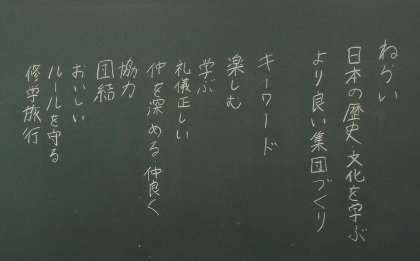 ねらい
日本の歴史文化を学ぶ
より良い集団づくり
キーワード
楽しむ
学ぶ
礼儀正しい
仲を深める 仲良く
協力
団結
おいしい
ルールを守る
修学旅行